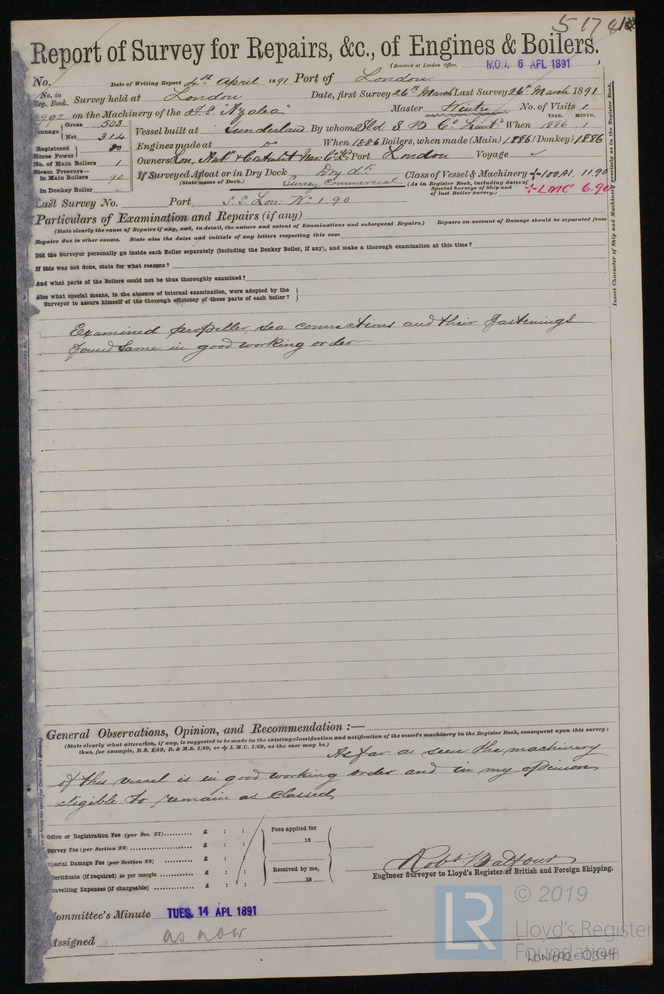 Report of Survey for Repairs, &c., of Engines & Boilers.
(Received at London Office, MON. 6 APL 1891)
No. Date of Writing Report 4th April 1891 Port of London
No. in Reg. Book. Survey held at London Date, first Survey 26th March Last Survey 26th March 1891
on the Machinery of the S.S. "Azalea" Master No. of Visits 1
Tonnage Gross 503 Net 314
Vessel built at Sunderland By whom Sld S B Co Limtd When 1886 YEAR. MONTH. 1
Registered Horse Power 80
Engines made at When 1886 Boilers, when made (Main) 1886 (Donkey) 1886
No. of Main Boilers 1
Owners Port London Voyage
Steam Pressure— In Main Boilers 90
If Surveyed Afloat or in Dry Dock Dry dk Class of Vessel & Machinery +100A1. 11.90
(State name of Dock.) Surrey Commercial (As in Register Book, including dates of Special Surveys of Ship and of last Boiler Survey.) +LMC 6.90
In Donkey Boiler
Last Survey No. Port S.S. Lon. No 1.90
Particulars of Examination and Repairs (if any)
(State clearly the cause of Repairs if any, and, in detail, the nature and extent of Examinations and subsequent Repairs.) Repairs on account of Damage should be separated from
Repairs due to other causes. State also the dates and initials of any letters respecting this case
Did the Surveyor personally go inside each Boiler separately (including the Donkey Boiler, if any), and make a thorough examination at this time?
If this was not done, state for what reasons?
And what parts of the Boilers could not be thoroughly examined?
Also what special means, in the absence of internal examination, were adopted by the
Surveyor to assure himself of the thorough efficiency of those parts of each boiler?
Insert Character of Ship and Machinery precisely as in the Register Book.
Examined propeller, sea connections and their fastenings
found same in good working order
General Observations, Opinion, and Recommendation :—
(State clearly what alteration, if any, is suggested to be made in the existing classification and notification of the vessel's machinery in the Register Book, consequent upon this survey:
thus, for example, B.S. 1/89, B. & M.S. 1/89, or + L.M.C. 1/89, as the case may be.)
As far as seen the machinery
of this vessel is in good working order and in my opinion
eligible to remain as classed
Office or Registration Fee (per Sec. 27) £ : :
Survey Fee (per Section 28) £ : :
Special Damage Fee (per Section 28) £ : :
Certificate (if required) as per margin £ : :
Travelling Expenses (if chargeable) £ : :
Fees applied for
18
Received by me,
18
Robt Balfour
Engineer Surveyor to Lloyd's Register of British and Foreign Shipping.
Committee's Minute TUES. 14 APL 1891
Assigned as now
LR
© 2019
Lloyd's Register
Foundation
LON692-0344